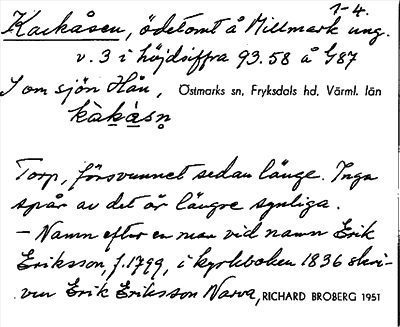 1-4.
Kackåsen, ödetomt å Millmark ung.
v. 3 i höjdsiffra 93.58 å G87
S om sjön Hån, Östmarks sn, Fryksdals hd, Värml. län
kàkàsn̥
Torp, försvunnet sedan länge. Inga
spår av det är längre synliga.
– Namn efter en man vid namn Erik
Eriksson, f. 1799, i kyrkboken 1836 skri-
ven Erik Eriksson Narva, RICHARD BROBERG 1951